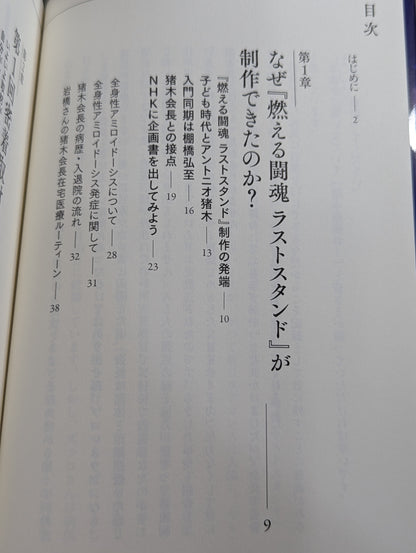 目次
はじめに —— 2
第1章
なぜ『燃える闘魂 ラストスタンド』が
制作できたのか? —— 9
『燃える闘魂 ラストスタンド』制作の発端 —— 10
子ども時代とアントニオ猪木 —— 13
入門同期は棚橋弘至 —— 16
猪木会長との接点 —— 19
NHKに企画書を出してみよう —— 23
全身性アミロイドーシスについて —— 28
全身性アミロイドーシス発症に関して —— 31
猪木会長の病歴・入退院の流れ —— 32
岩橋さんの猪木会長在宅医療ルーティーン —— 38